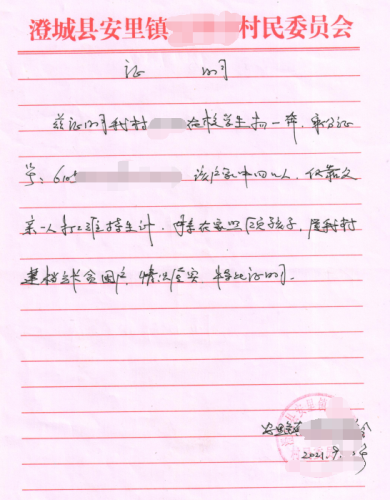 澄城县安里镇 村民委员会
证 明
兹证明我村 在校学生杨一 身份证
号:610 该户家中四口人,仅靠父
亲一人打工维持生计,母亲在家照顾孩子,属我村
建档立卡贫困户,情况属实,特此证明。
安里镇
2021.9.